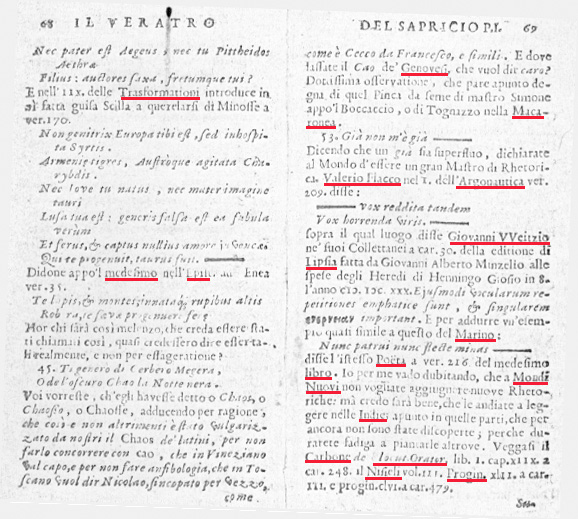 68 IL VERATRO
Nec pater est Aegeus; nec tu Pittheidos
Aethra
Filius: auctores saxa, fretumque tui?
E nell' IIX. delle Trasformationi introduce in
al fatta guisa Scilla a querelarsi di Minosse a
ver. 170.
Non genitrix Europa tibi est, sed inhospi-
ta Syrtis.
Armeniae tigres, Austroque agitata Cha-
rybdis.
Nec Iove tu natus, nec mater imagine
tauri
Lusa tua est: generis falsa est ea fabula
verum
Et ferus, & captus nullius amore
Qui te progenuit, taurus fuit.
Didone appo'l medesimo nell' Enea
ver. 35.
Te lapis, & montes, innataq; rupibus altis
Robora, te saevae progenuere ferae
Hor chi sarà così melenzo, che creda essere sta-
ti chiamati così, quasi credessero dire esserta-
li realmente, e non per essageratione?
45. Ta genero di Cerbero Megera,
O de l'oscuro Chao la Notte nera.
Voi vorreste, ch'egli havesse detto o Chaos, o
Chaoso, o Chaosse, adducendo per ragione,
che così e non altrimenti è stato vulgariz-
zato da nostri il Chaos de' latini, per non
farlo concorrere con cao, che in Vineziano
val capo, e per non fare anfibologia, che in To-
scano vuol dir Nicolao, sincopato per vezzo,
come
DEL SAPRICIO P.I. 69
come è Cecco da Francesco, e simili. E dove
lassate il Cao de' Genovesi, che vuol dir caro?
Dottissima osservatione, che pare apunto de-
gna di quel Pinca da seme di mastro Simone
appo'l Boccaccio, o di Tognazzo nella Maca-
ronea.
53. Già non m'è già
Dicendo che un già sia superfluo, dichiarate
al Mondo d'essere un gran Mastro di Rhetori-
ca. Valerio Flacco nel 1. dell'Argonautica ver.
209. disse:
vox reddita tandem
Vox horrenda viris.
sopra il qual luogo disse Giovanni VVeitzio
ne' suoi Collettanei a car. 30. della editione di
Lipsia fatta da Giovanni Alberto Munzelio alle
spese degli Heredi di Henningo Grosio in 8.
l'anno CIƆ. IƆC. XXX. Ejusmodi vocularum re-
petitiones emphaticae sunt, & singularem
important. E per addurre vn'esem-
pio quasi simile a questo del Marino:
Nunc patrui nunc flecte minas
disse l'istesso Poeta a ver. 216. del medesimo
libro. Io per me vado dubitando, che a Mondi
Nuovi non vogliate aggiugner nuove Rheto-
riche: ma credo sarà bene, che le andiate a leg-
gere nelle Indie apunto in quelle parti, che per
ancora non sono state discoperte; perche du-
rarete fadiga a piantarle altrove. Veggasi il
Carbone de Elocut. Orator. lib. 1. cap. XIII. a
car. 248. il Nisieli vol. III. Progin. XLII. a car.
111. e progin. CLVI. a car. 479.